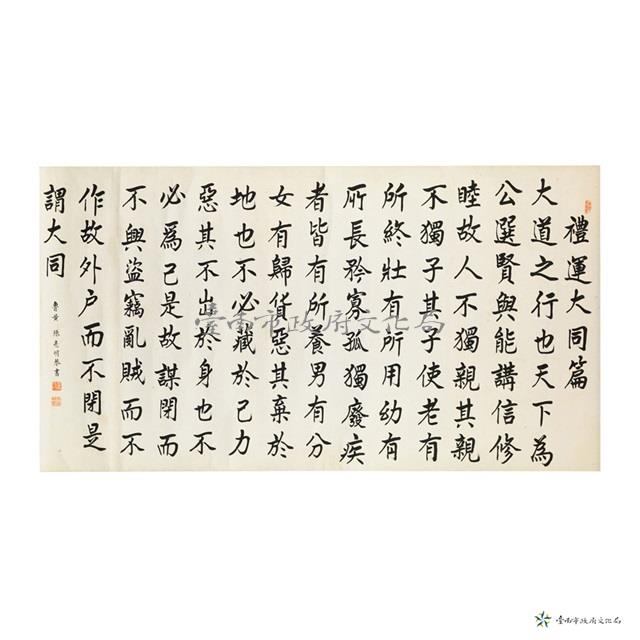 禮運大同篇
大道之行也天下為
公選賢與能講信修
睦故人不獨親其親
不獨子其子使老有
所終壯有所用幼有
所長矜寡孤獨廢疾
者皆有所養男有分
女有歸貨惡其棄於
地也不必藏於己力
惡其不出於身也不
必爲己是故謀閉而
不興盜竊亂賊而不
作故外戶而不閉是
謂大同
臺南市政府文化局
臺南市政府文化局